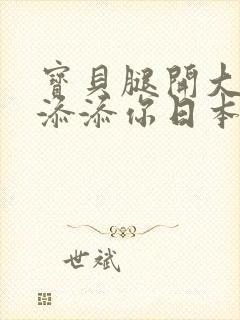 寶貝腿開大
添添你日本
世斌